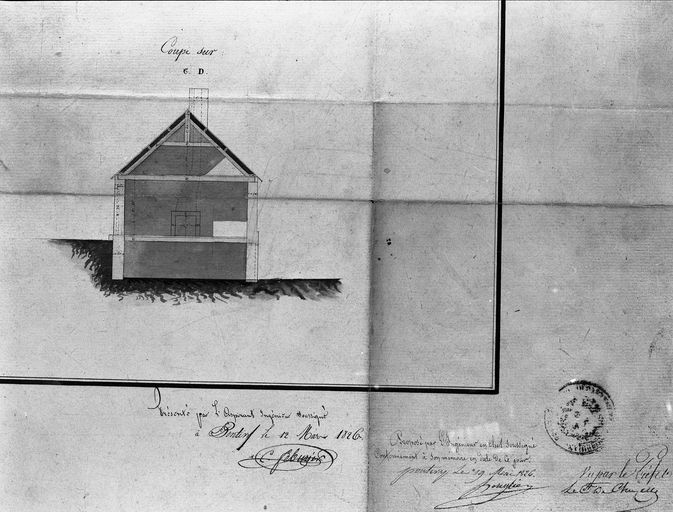 Coupe sur
C. D.
Présenté par l'Aspirant Ingénieur Soussigné
à Pontivy le 12 Mars 1826
Proposé par l'Ingénieur en chef Soussigné
Conformément à Son mémoire en date de ce jour
pontivy Le 19 Mai 1826.
Vu par le Préfet
Le Cte De